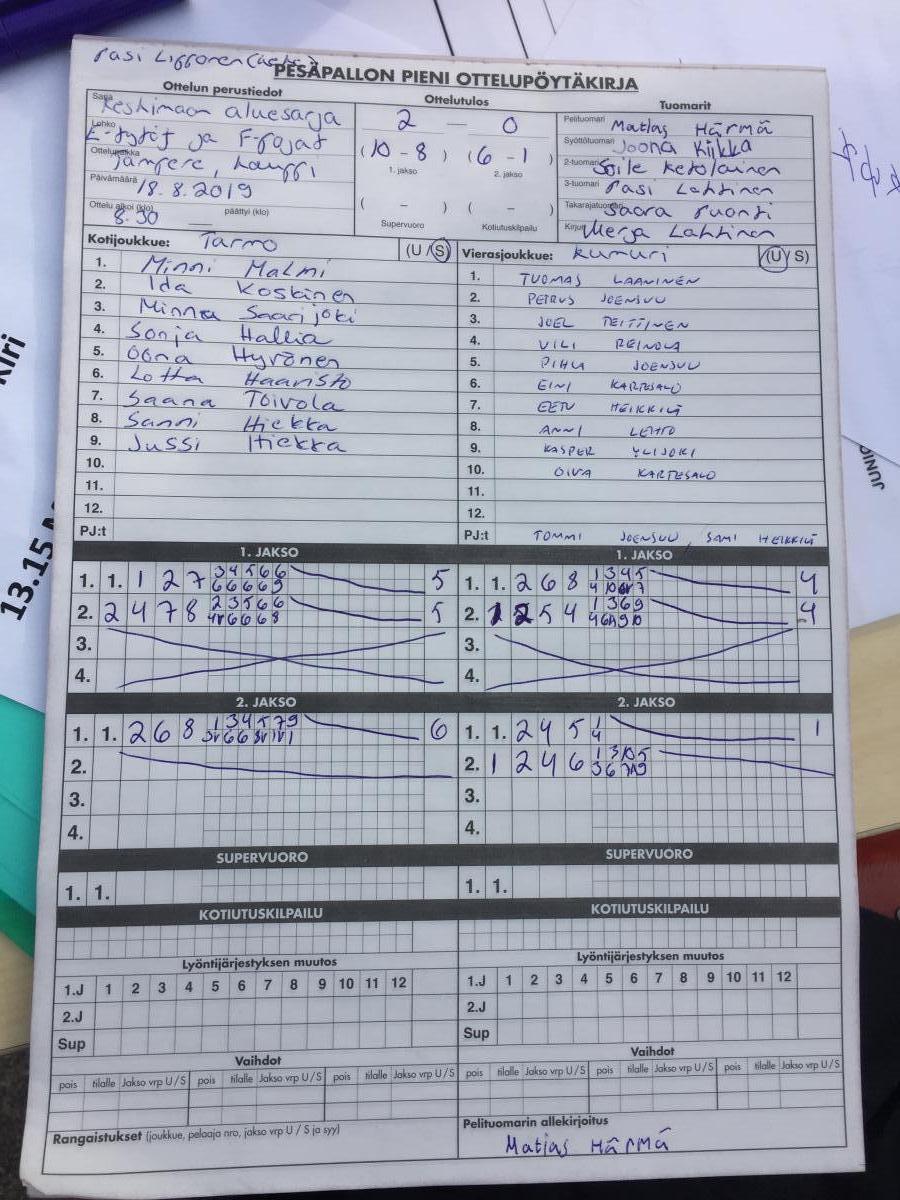 PESÄPALLON PIENI OTTELUPÖYTÄKIRJA
Ottelun perustiedot
Sarja Keskimaan aluesarja
Lohko E-tytöt ja F-pojat
Ottelupaikka Tampere, Kauppi
Päivämäärä 18.8.2019
Ottelu alkoi (klo) 8.30 päättyi (klo)
Ottelutulos
2 — 0
(10 - 8) (6 - 1)
1. jakso 2. jakso
( - ) ( - )
Supervuoro Kotiutuskilpailu
Tuomarit
Pelituomari Matias Härmä
Syöttötuomari Joona Kiikka
2-tuomari Soile Ketolainen
3-tuomari Pasi Lahtinen
Takarajatuomari Saara Ruonti
Kirjuri Merja Lahtinen
Kotijoukkue: Tarmo (U/S)
1. Minni Malmi
2. Ida Koskinen
3. Minna Saarijoki
4. Sonja Hallia
5. Oona Hyrönen
6. Lotta Haavisto
7. Saana Toivola
8. Sanni Hiekka
9. Jussi Hiekka
10.
11.
12.
PJ:t
Vierasjoukkue: Kumuri (U/S)
1. TUOMAS LAANINEN
2. PETRUS JOENSUU
3. JOEL TEITTINEN
4. VILI REINOLA
5. PIHLA JOENSUU
6. EINI KARTESALO
7. EETU HEIKKILÄ
8. ANNI LEHTO
9. KASPER YLIJOKI
10. OIVA KARTESALO
11.
12.
PJ:t TOMMI JOENSUU, SAMI HEIKKILÄ
1. JAKSO
1. 1. 1 2 7 3 4 5 6 6 5
6 6 6 6 9
2. 2 4 7 8 2 3 5 6 6 5
4v 6 6 6 8
3.
4.
1. JAKSO
1. 1. 2 6 8 1 3 4 5 4
2. 2 5 4 1 3 6 9 4
3.
4.
2. JAKSO
1. 1. 2 6 8 1 3 4 5 7 9 6
2.
3.
4.
2. JAKSO
1. 1. 2 4 5 1 1
4
2. 1 2 4 6 1 3 10 5
3.
4.
SUPERVUORO
1. 1.
SUPERVUORO
1. 1.
KOTIUTUSKILPAILU
KOTIUTUSKILPAILU
Lyöntijärjestyksen muutos
1.J 1 2 3 4 5 6 7 8 9 10 11 12
2.J
Sup
Lyöntijärjestyksen muutos
1.J 1 2 3 4 5 6 7 8 9 10 11 12
2.J
Sup
Vaihdot
pois tilalle Jakso vrp U/S pois tilalle Jakso vrp U/S pois tilalle Jakso vrp U/S
Vaihdot
pois tilalle Jakso vrp U/S pois tilalle Jakso vrp U/S pois tilalle Jakso vrp U/S
Rangaistukset (joukkue, pelaaja nro, jakso vrp U / S ja syy)
Pelituomarin allekirjoitus
Matias Härmä
13.15